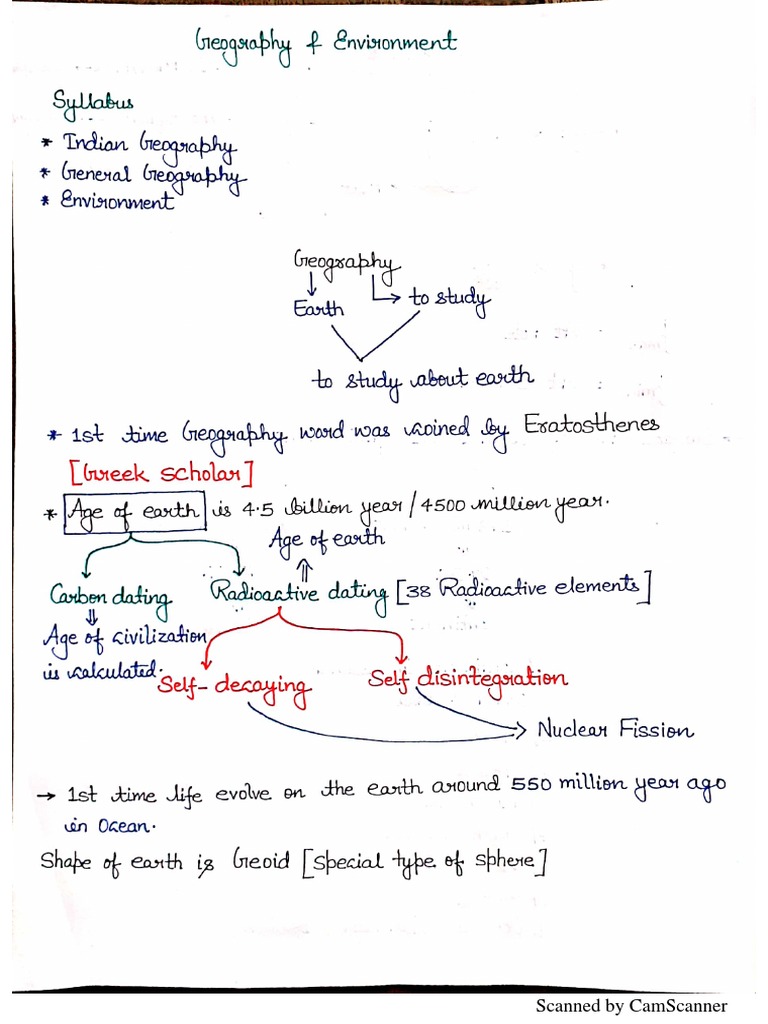 Geography & Environment
Syllabus
* Indian Geography
* General Geography
* Environment
Geography
Earth
to study
to study about earth
* 1st time Geography word was coined by Eratosthenes
[Greek scholar]
* Age of earth is 4.5 billion year / 4500 million year.
Age of earth
Carbon dating
Radioactive dating [38 Radioactive elements]
Age of civilization
is calculated.
Self-decaying
Self disintegration
Nuclear Fission
→ 1st time life evolve on the earth around 550 million year ago
in Ocean.
Shape of earth is Geoid [special type of sphere]
Scanned by CamScanner